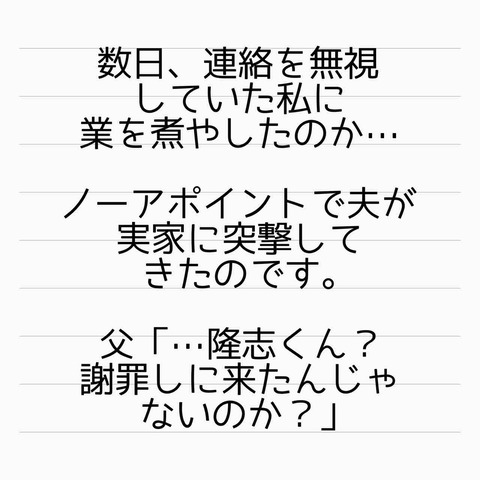 数日、連絡を無視
していた私に
業を煮やしたのか…
ノーアポイントで夫が
実家に突撃して
きたのです。
父「…隆志くん？
謝罪しに来たんじゃ
ないのか？」